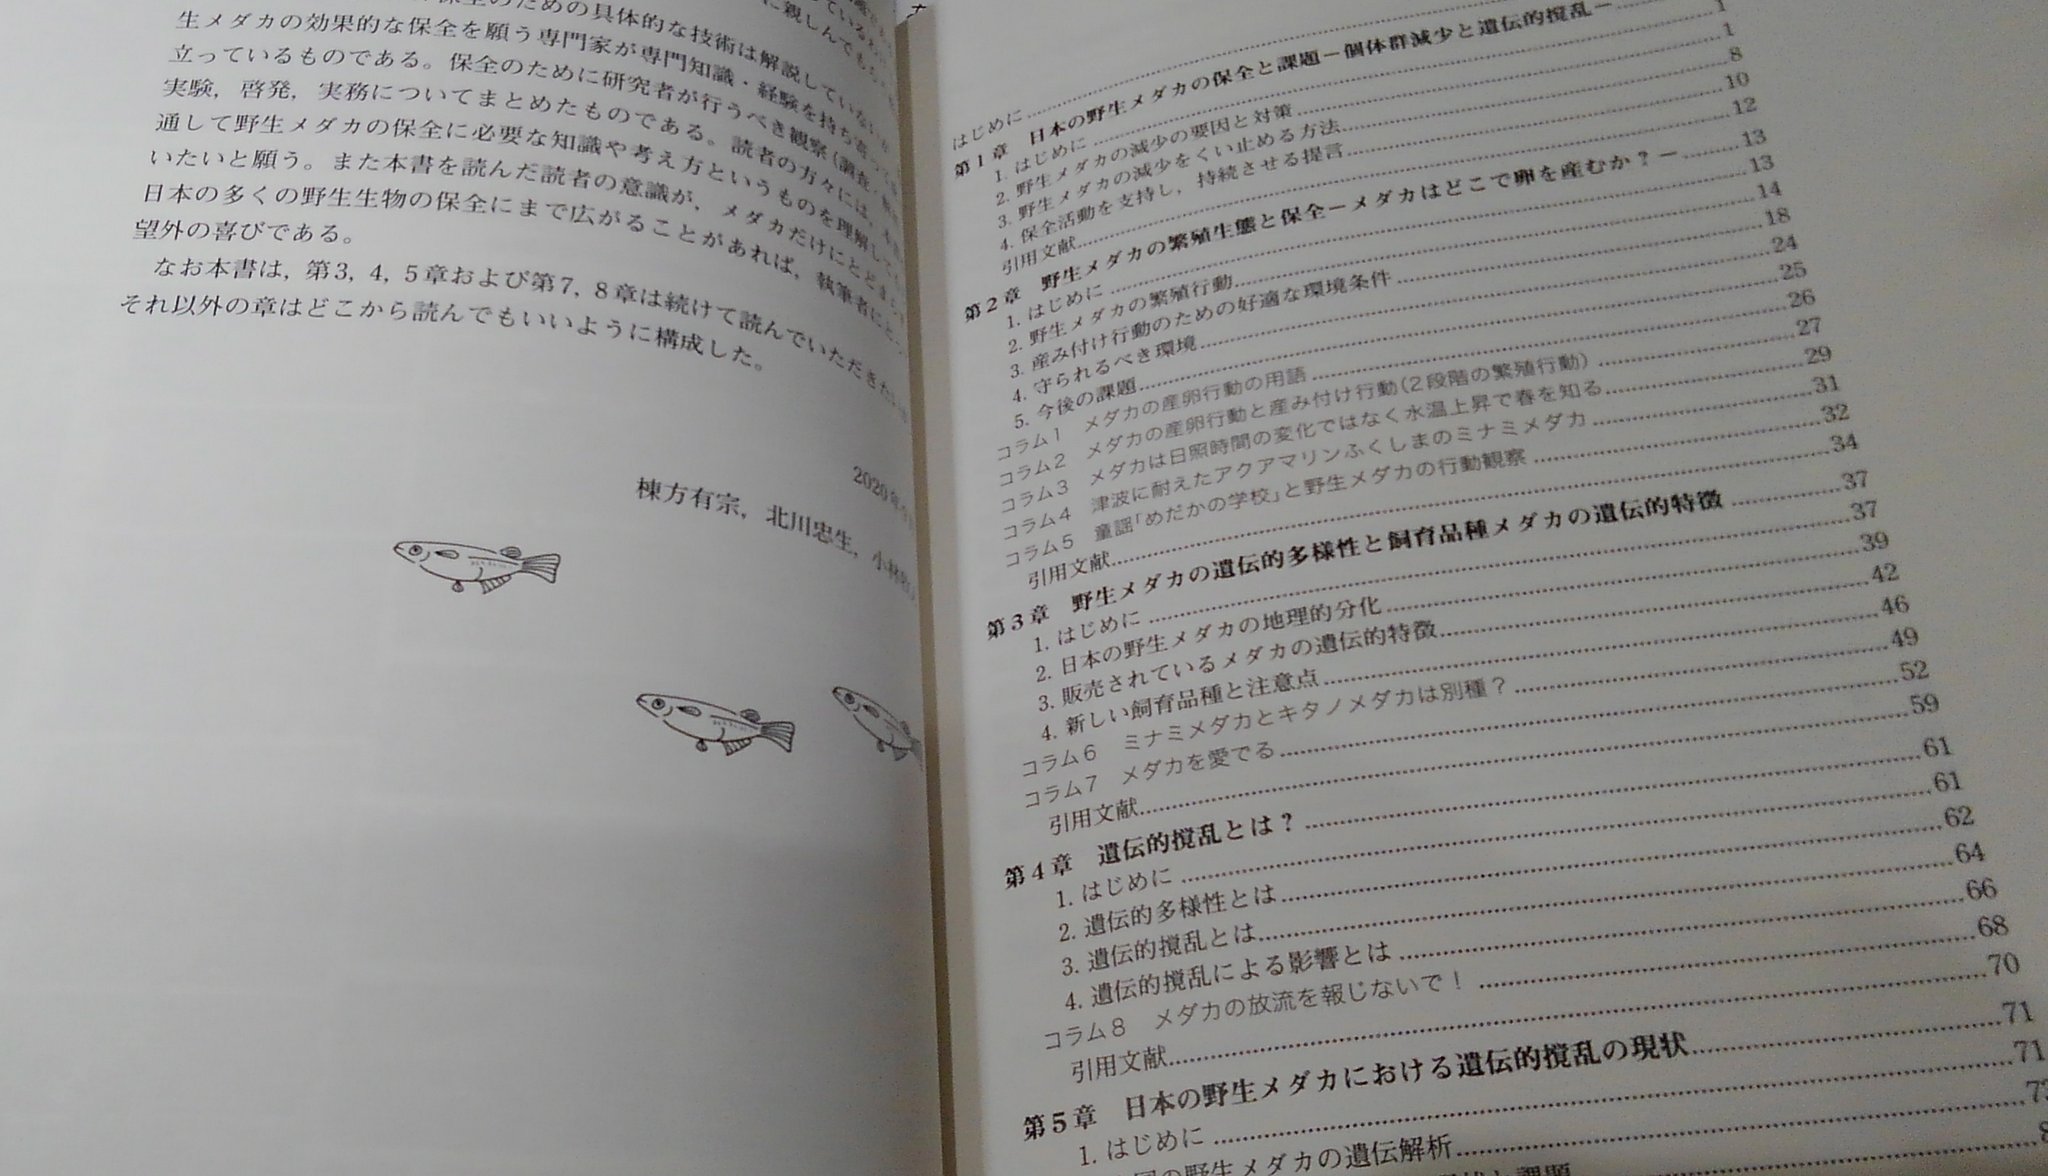 保全のための具体的な技術は解説していない
生メダカの効果的な保全を願う専門家が専門知識・経験を持ち寄って
立っているものである。保全のために研究者が行うべき観察（調査・
実験，啓発，実務についてまとめたものである。読者の方々には，
通して野生メダカの保全に必要な知識や考え方というものを理解して
いたいと願う。また本書を読んだ読者の意識が，メダカだけにとどまらず
日本の多くの野生生物の保全にまで広がることがあれば，執筆者にと
望外の喜びである。
なお本書は，第3, 4, 5章および第7, 8章は続けて読んでいただきたい
それ以外の章はどこから読んでもいいように構成した。
2020年
棟方有宗，北川忠生，小林
はじめに
第1章 日本の野生メダカの保全と課題－個体群減少と遺伝的撹乱－
1. はじめに 1
2. 野生メダカの減少の要因と対策 1
3. 野生メダカの減少をくい止める方法 8
4. 保全活動を支持し，持続させる提言 10
引用文献 12
第2章 野生メダカの繁殖生態と保全－メダカはどこで卵を産むか？－ 13
1. はじめに 13
2. 野生メダカの繁殖行動 14
3. 産み付け行動のための好適な環境条件 18
4. 守られるべき環境 24
5. 今後の課題 25
コラム1 メダカの産卵行動の用語 26
コラム2 メダカの産卵行動と産み付け行動（2段階の繁殖行動） 27
コラム3 メダカは日照時間の変化ではなく水温上昇で春を知る 29
コラム4 津波に耐えたアクアマリンふくしまのミナミメダカ 31
コラム5 童謡「めだかの学校」と野生メダカの行動観察 32
引用文献 34
第3章 野生メダカの遺伝的多様性と飼育品種メダカの遺伝的特徴 37
1. はじめに 37
2. 日本の野生メダカの地理的分化 39
3. 販売されているメダカの遺伝的特徴 42
4. 新しい飼育品種と注意点 46
コラム6 ミナミメダカとキタノメダカは別種？ 49
コラム7 メダカを愛でる 52
引用文献 59
第4章 遺伝的撹乱とは？ 61
1. はじめに 61
2. 遺伝的多様性とは 62
3. 遺伝的撹乱とは 64
4. 遺伝的撹乱による影響とは 66
コラム8 メダカの放流を報じないで！ 68
引用文献 70
第5章 日本の野生メダカにおける遺伝的撹乱の現状 71
1. はじめに 71
国の野生メダカの遺伝解析 73